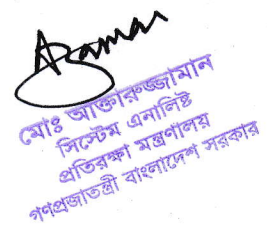 মোঃ আক্তারুজ্জামান
সিস্টেম এনালিষ্ট
প্রতিরক্ষা মন্ত্রণালয়
গণপ্রজাতন্ত্রী বাংলাদেশ সরকার